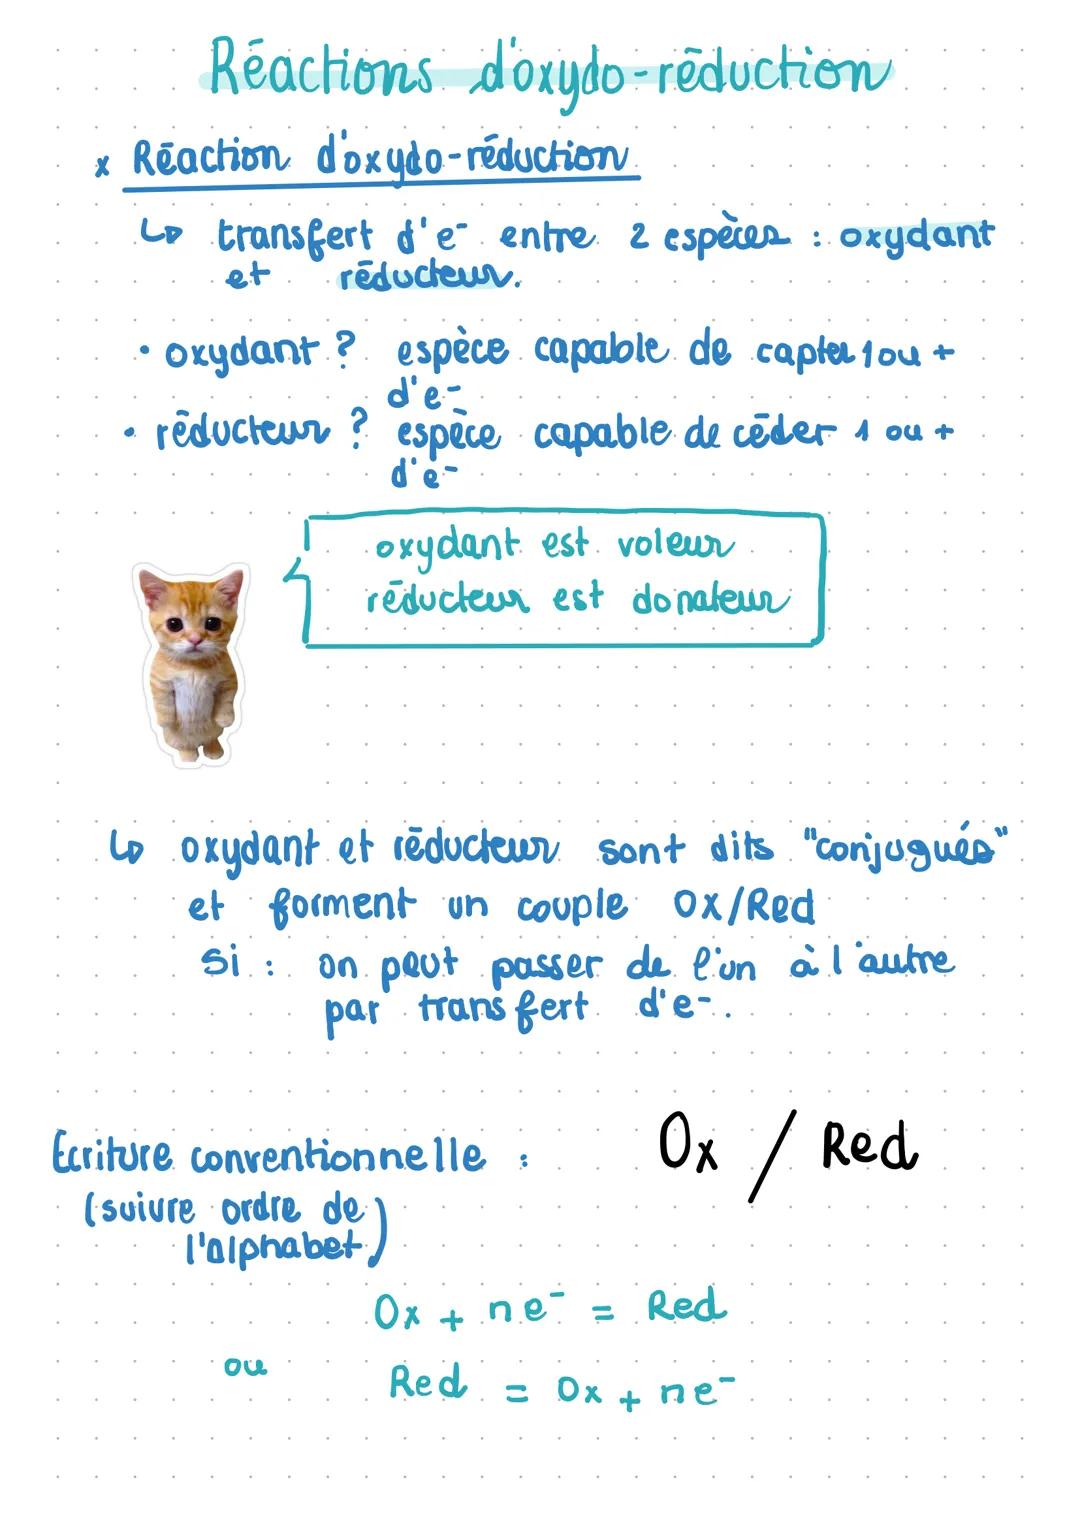 Réactions d'oxydo-réduction
x Réaction d'oxydo-réduction
↳ transfert d'e⁻ entre 2 espèces : oxydant
et réducteur.
• oxydant ? espèce capable de capter 1 ou +
d'e⁻
• réducteur ? espèce capable de céder 1 ou +
d'e⁻
oxydant est voleur
réducteur est donateur
↳ oxydant et réducteur sont dits "conjugués"
et forment un couple Ox/Red
Si : on peut passer de l'un à l'autre
par transfert d'e⁻.
Ecriture conventionnelle : Ox / Red
(suivre ordre de
l'alphabet)
Ox + ne⁻ = Red
ou
Red = Ox + ne⁻